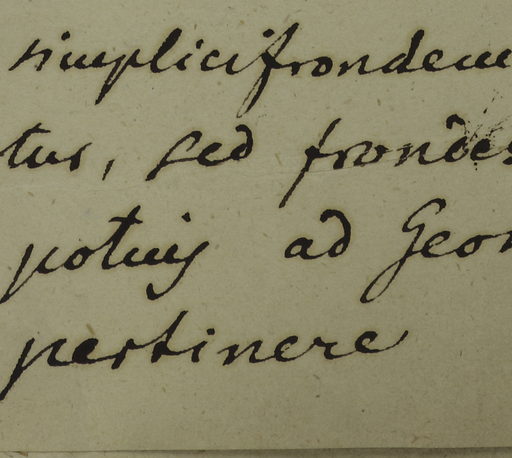 simplicifrondem
tus, sed frondes
potuis ad Geor
pertinere